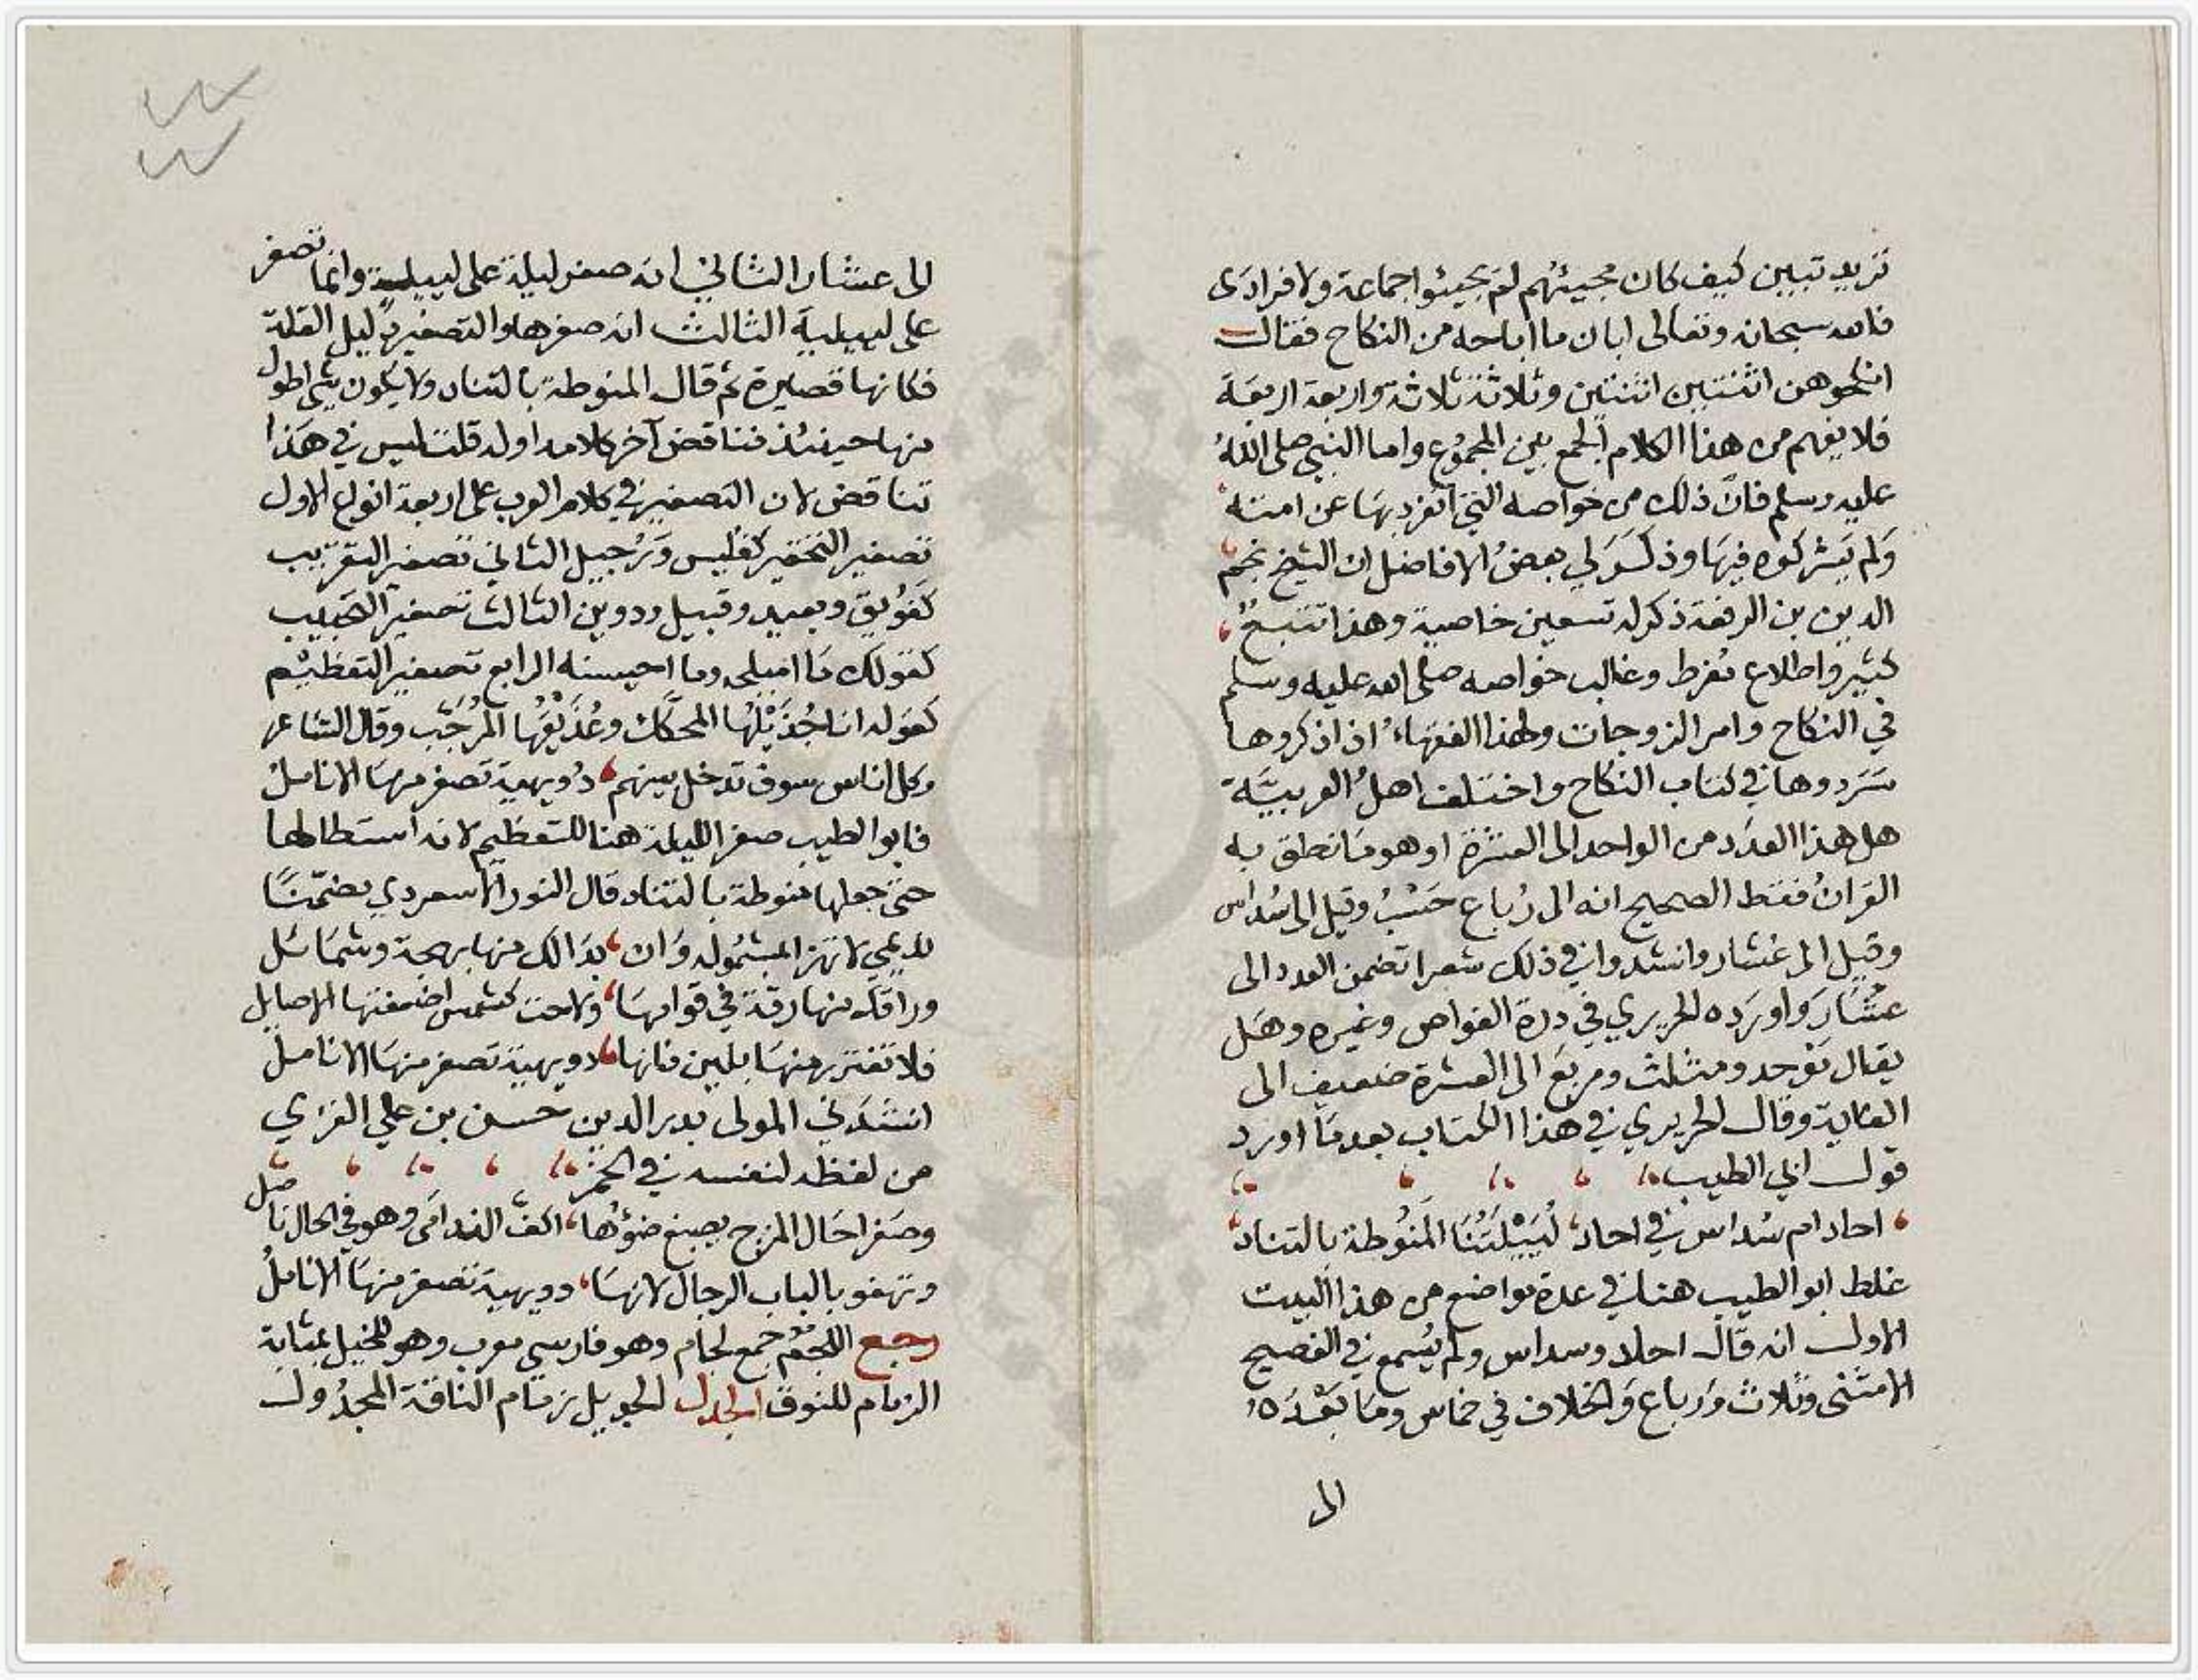 تريد تبيين كيف كان مجيئهم لم يجيئوا جماعة ولا فرادى
فالله سبحانه وتعالى ابان ما اباحه من النكاح فقال
انكحوهن اثنتين اثنتين وثلاثة ثلاثة واربعة اربعة
فلا يفهم من هذا الكلام الجمع بين المجموع واما النبي صلى الله
عليه وسلم فانّ ذلك من خواصه التي انفرد بها عن امته
وَلم يَشركوه فيها وذكَرَ لي بعضُ الافاضل ان الشيخ نجم
الدين بن الرفعة ذكر له تسعين خاصية وهذا تتبع
كثير واطلاع مُفرط وغالب خواصه صلى الله عليه وسلم
في النكاح وامر الزوجات ولهذا الفقهاءُ اذا ذكروها
سَرَدوها في كتاب النكاح واختلف اهلُ العربيَّة
هل هذا العدَد من الواحد الى العشرة او هو مَا نطق به
القرانُ فقط الصحيح انه الى رُباع حَسْبُ وقيل الى سُداس
وقيل الى عُشار وانشدوا في ذلك شعرا تضمن العدد الى
عُشَارَ وَاورَده الحريري في درة الغواص وغيره وهَل
يقال مَوْحد ومثلث ومربَع الى العشرة ضعيف الى
الغاية وقال الحريري في هذا الكتاب بعد مَا اورد
قول ابي الطيب
احاد ام سُداس في احاد لُيَيْلَتُنَا المَنُوطة بالتناد
غلط ابو الطيب هنا في عدة مواضع من هذا البيت
الاول انه قال احاد وسداس ولم يُسمع في الفصيح
الا مثنى وثلاث وَرباع وَالخلاف في خماس ومَا بَعْدَه
الى
الى عشار الثاني انه صغر ليلة على لييلة وانما تصغر
على لييلية الثالث انه صغرها والتصغير دليل القلة
فكانها قصيرة ثم قال المنوطة بالتناد ولا يكون شي اطول
منها حينئذ فتناقض آخر كلامه اوله قلت ليس في هَذا
تناقض لان التصغير في كلام العرب على اربعة انواع الاول
تصغير التحقير كفليس وَرُجيل الثاني تصغير التقريب
كفَوُيق وبعيد وقبيل ودوين الثالث تصغير التحبيب
كقولك مَا اميلحه وما احيسنه الرابع تصغير التعظيم
كقوله انا جُذَيْلُها المحكَّك وعُذَيْقُها المُرجَّب وقال الشاعر
وكل اناس سوف تدخل بينهم دُويهية تصفر منهَا الاناملُ
فابو الطيب صغر الليلة هنا للتعظيم لانه استطالها
حتى جعلها منوطة بالتناد قال النور الاسعردي مضمّنًا
لا تهز المشمُولة وَان بدَا لك منها بهجة وشمَائل
وراقك منها رقة في قوامها ولاحت كشمس اضعفتها الاصايل
فلا تغترر منهَا بلين فانها دويهية تصفر منهَا الانامل
انشدَني المولى بدر الدين حَسن بن علي الغزي
من لفظه لنفسه في الخمر
وصَفرا حَال المزج يصبغ ضوؤها اكفّ الندامَى وهو في الحال ناصل
وتهفو بالباب الرجال لانهَا دويهية تصفر منهَا الاناملُ
رجع اللجُمُ جمع لجام وهو فارسي معرب وهو للخيل بمثابة
الزمام للنوق الجدل الجديل زمام الناقة المجدُول